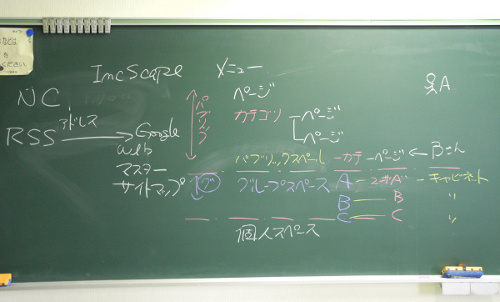 IncScape
NC
RSS アドレス → Google
web
マスター
サイトマップ
メニュー
ページ
カテゴリ ページ
ページ
パブリック
パブリックスペース - カテ - ページ ← Bさん
グループスペース A - キャビネット
B B 〃
C C 〃
個人スペース
A